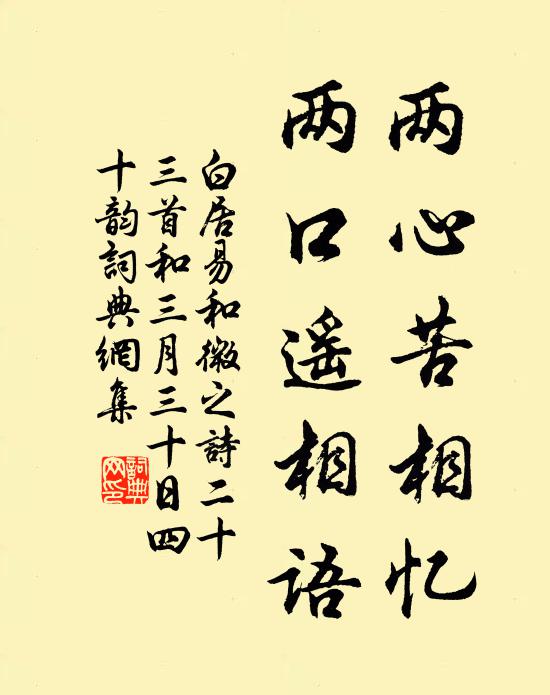 两心苦相忆
两口遥相语
白居易和微之詩二十
三首和三月三十日四
十韵詞典網集
詞典网印